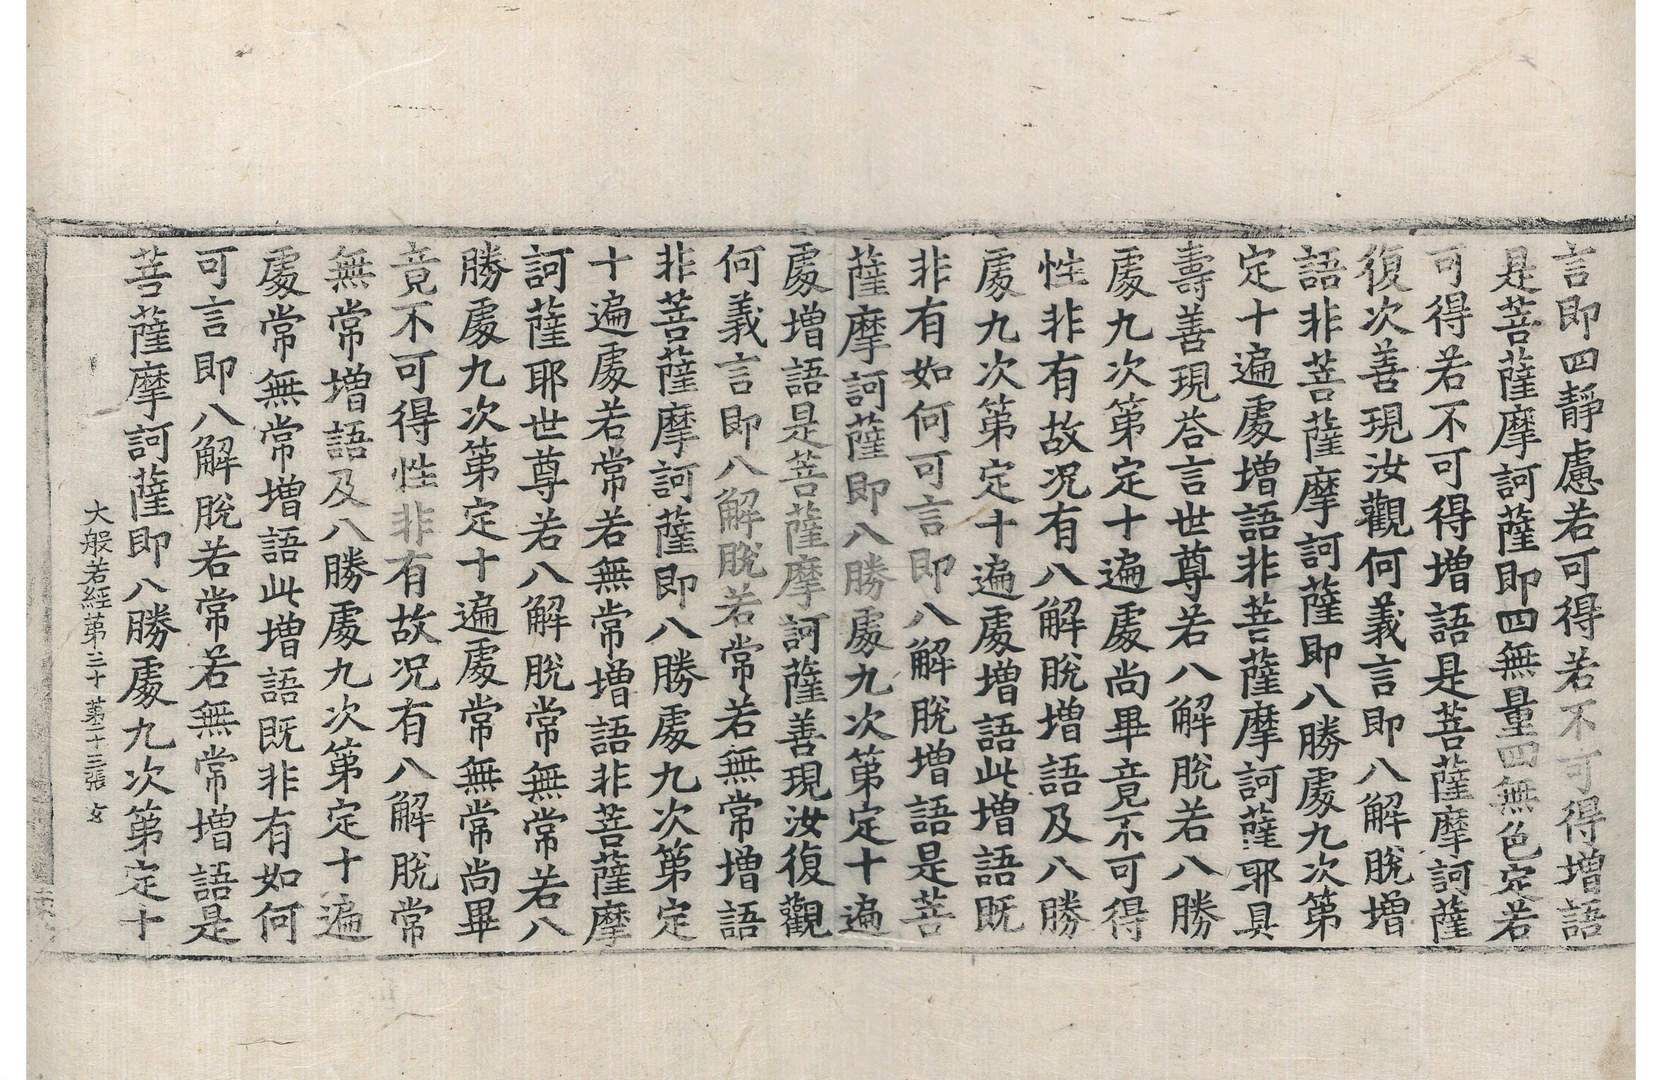 言即四靜慮若可得若不可得增語
是菩薩摩訶薩即四無量四無色定若
可得若不可得增語是菩薩摩訶薩
復次善現汝觀何義言即八解脫增
語非菩薩摩訶薩即八勝處九次第
定十遍處增語非菩薩摩訶薩耶具
壽善現荅言世尊若八解脫若八勝
處九次第定十遍處尚畢竟不可得
性非有故况有八解脫增語及八勝
處九次第定十遍處增語此增語既
非有如何可言即八解脫增語是菩
薩摩訶薩即八勝處九次第定十遍
處增語是菩薩摩訶薩善現汝復觀
何義言即八解脫若常若無常增語
非菩薩摩訶薩即八勝處九次第定
十遍處若常若無常增語非菩薩摩
訶薩耶世尊若八解脫常無常若八
勝處九次第定十遍處常無常尚畢
竟不可得性非有故况有八解脫常
無常增語及八勝處九次第定十遍
處常無常增語此增語既非有如何
可言即八解脫若常若無常增語是
菩薩摩訶薩即八勝處九次第定十
大般若經第三十 第十三張 玄